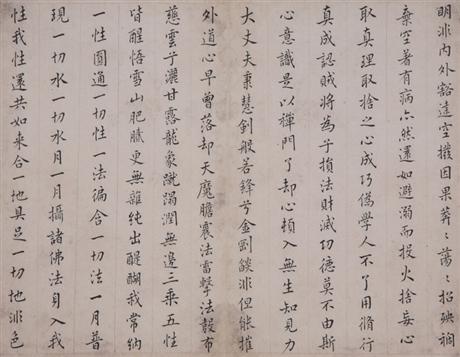 明非內外豁達空撥因果莽〻蕩招殃禍
棄空著有病亦然還如避溺而投火捨妄心
取真理取捨之心成巧偽學人不了用脩行
真成認賊將為子損法財滅功德莫不由斯
心意識是以禪門了却心頓入無生知見力
大丈夫秉慧劍般若鋒兮金剛燄非但能摧
外道心早曾落却天魔膽震法雷擊法鼓布
慈雲兮灑甘露龍象蹴蹋潤無邊三乘五性
皆醒悟雪山肥膩更無雜純出醍醐我常納
一性圓通一切性一法徧含一切法一月普
現一切水一切水月一月攝諸佛法身入我
性我性還共如来合一地具足一切地非色